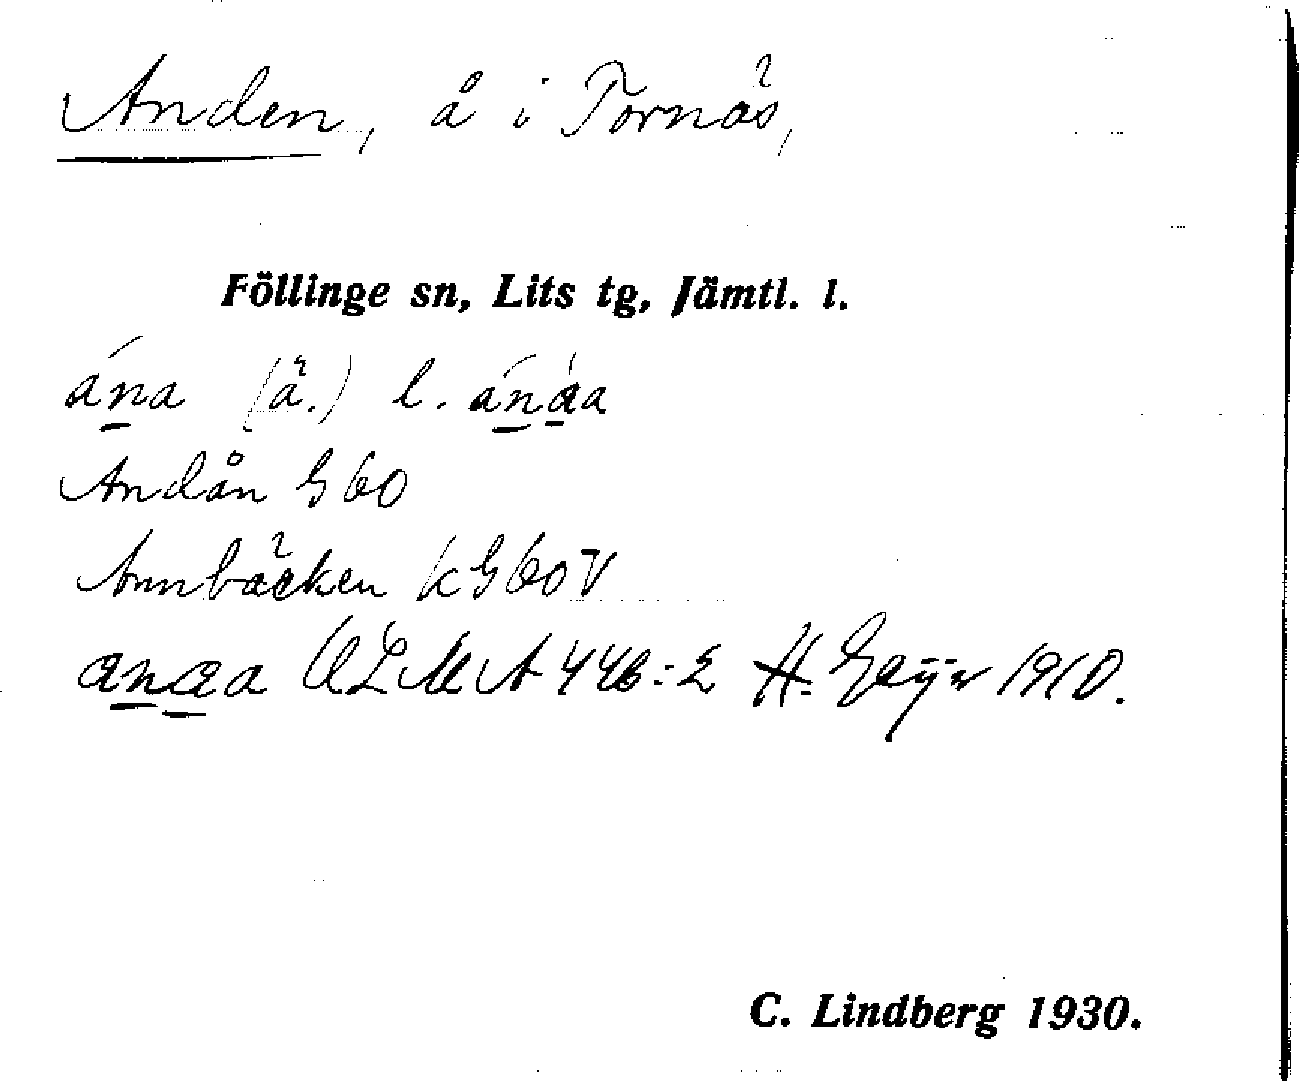 Anden, å i Tornäs,
Föllinge sn, Lits tg, Jämtl. l.
ána (ä.) l. ánáa
Andån G 60
Annbäcken kG60V
anaa ULMA 446:2 H. Geijer 1910.
C. Lindberg 1930.